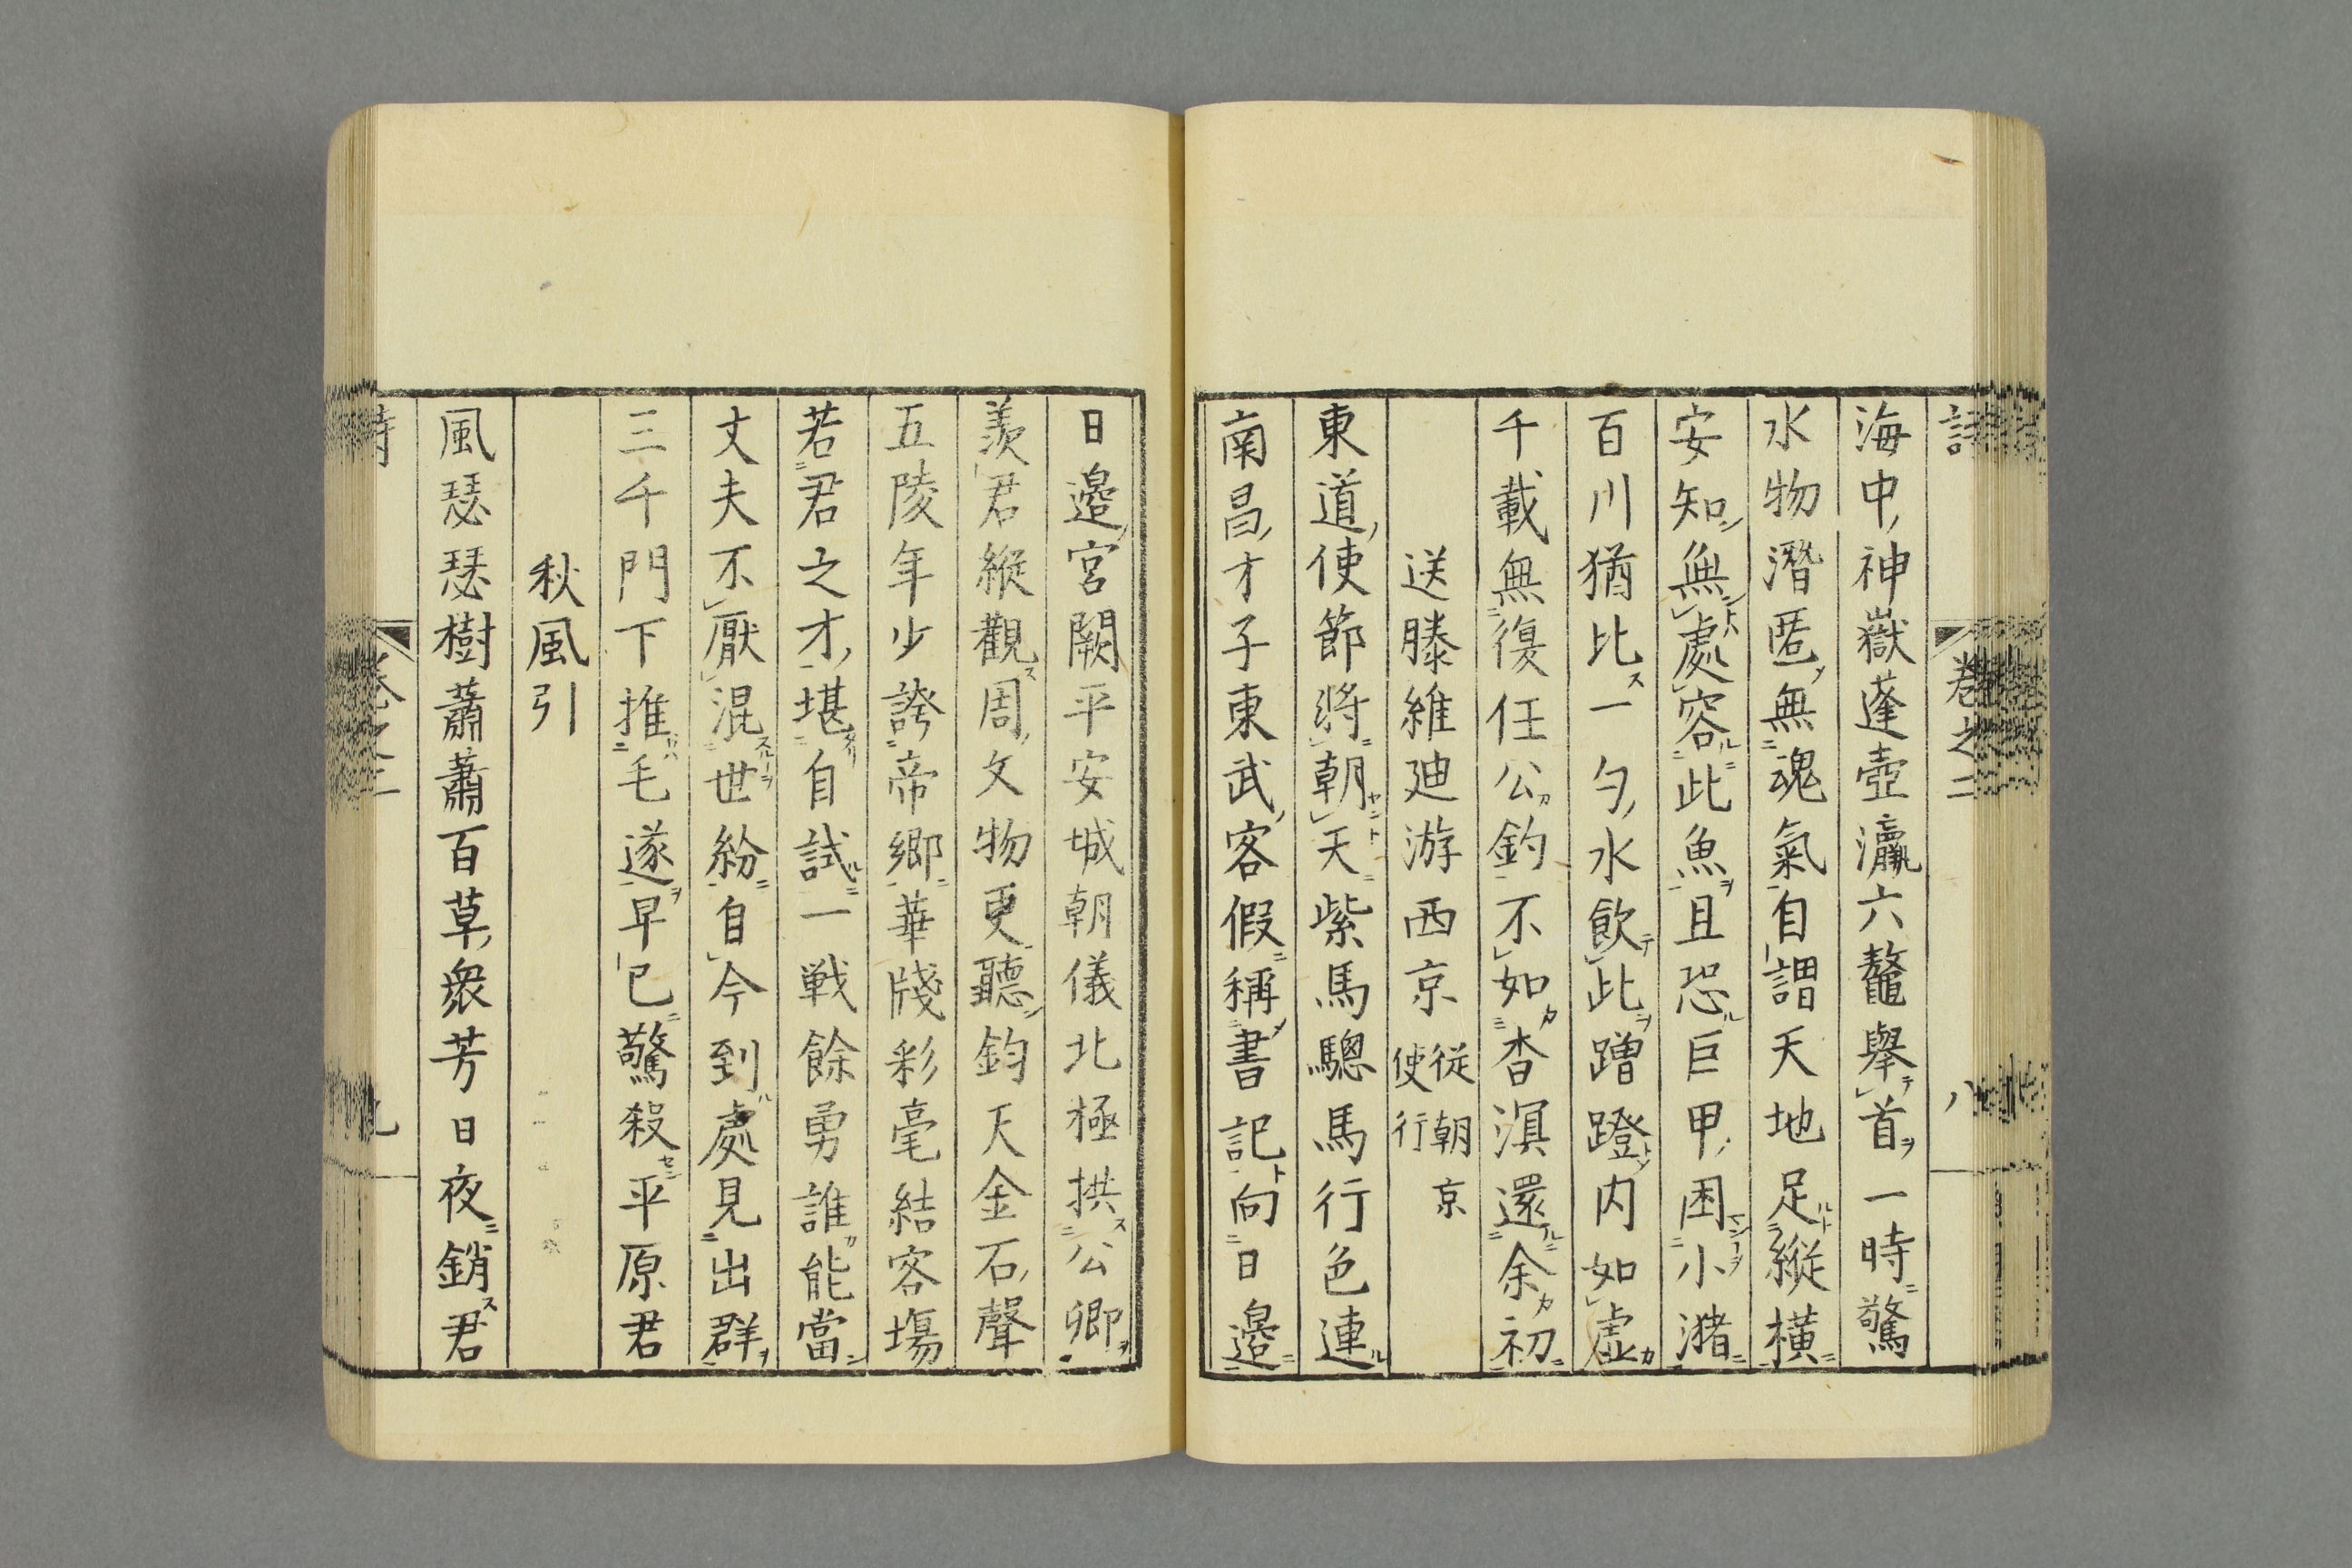 詩
卷之二
八
海中神嶽蓬壺瀛六鼇舉首一時驚
水物潛匿無魂氣自謂天地足縱橫
安知無處容此魚且恐巨甲困小瀦
百川猶比一勺水飲此蹭蹬内如虛
千載無復任公釣不如杳溟還余初
送滕維迪游西京
從朝京
使行
東道使節將朝天紫馬驄馬行色連
南昌才子東武客假稱書記向日邊
日邊宮闕平安城朝儀北極拱公卿
羨君縱觀周文物更聽鈞天金石聲
五陵年少誇帝鄉華牋彩毫結客場
若君之才堪自試一戰餘勇誰能當
丈夫不厭混世紛自今到處見出群
三千門下推毛遂早已驚殺平原君
秋風引
風瑟瑟樹蕭蕭百草衆芳日夜銷君
詩
卷之二
九